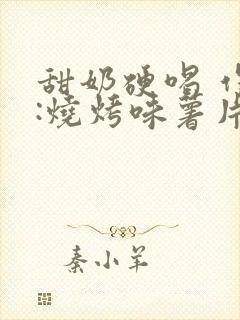 甜奶硬唱
:燒烤味薯片
秦小羊